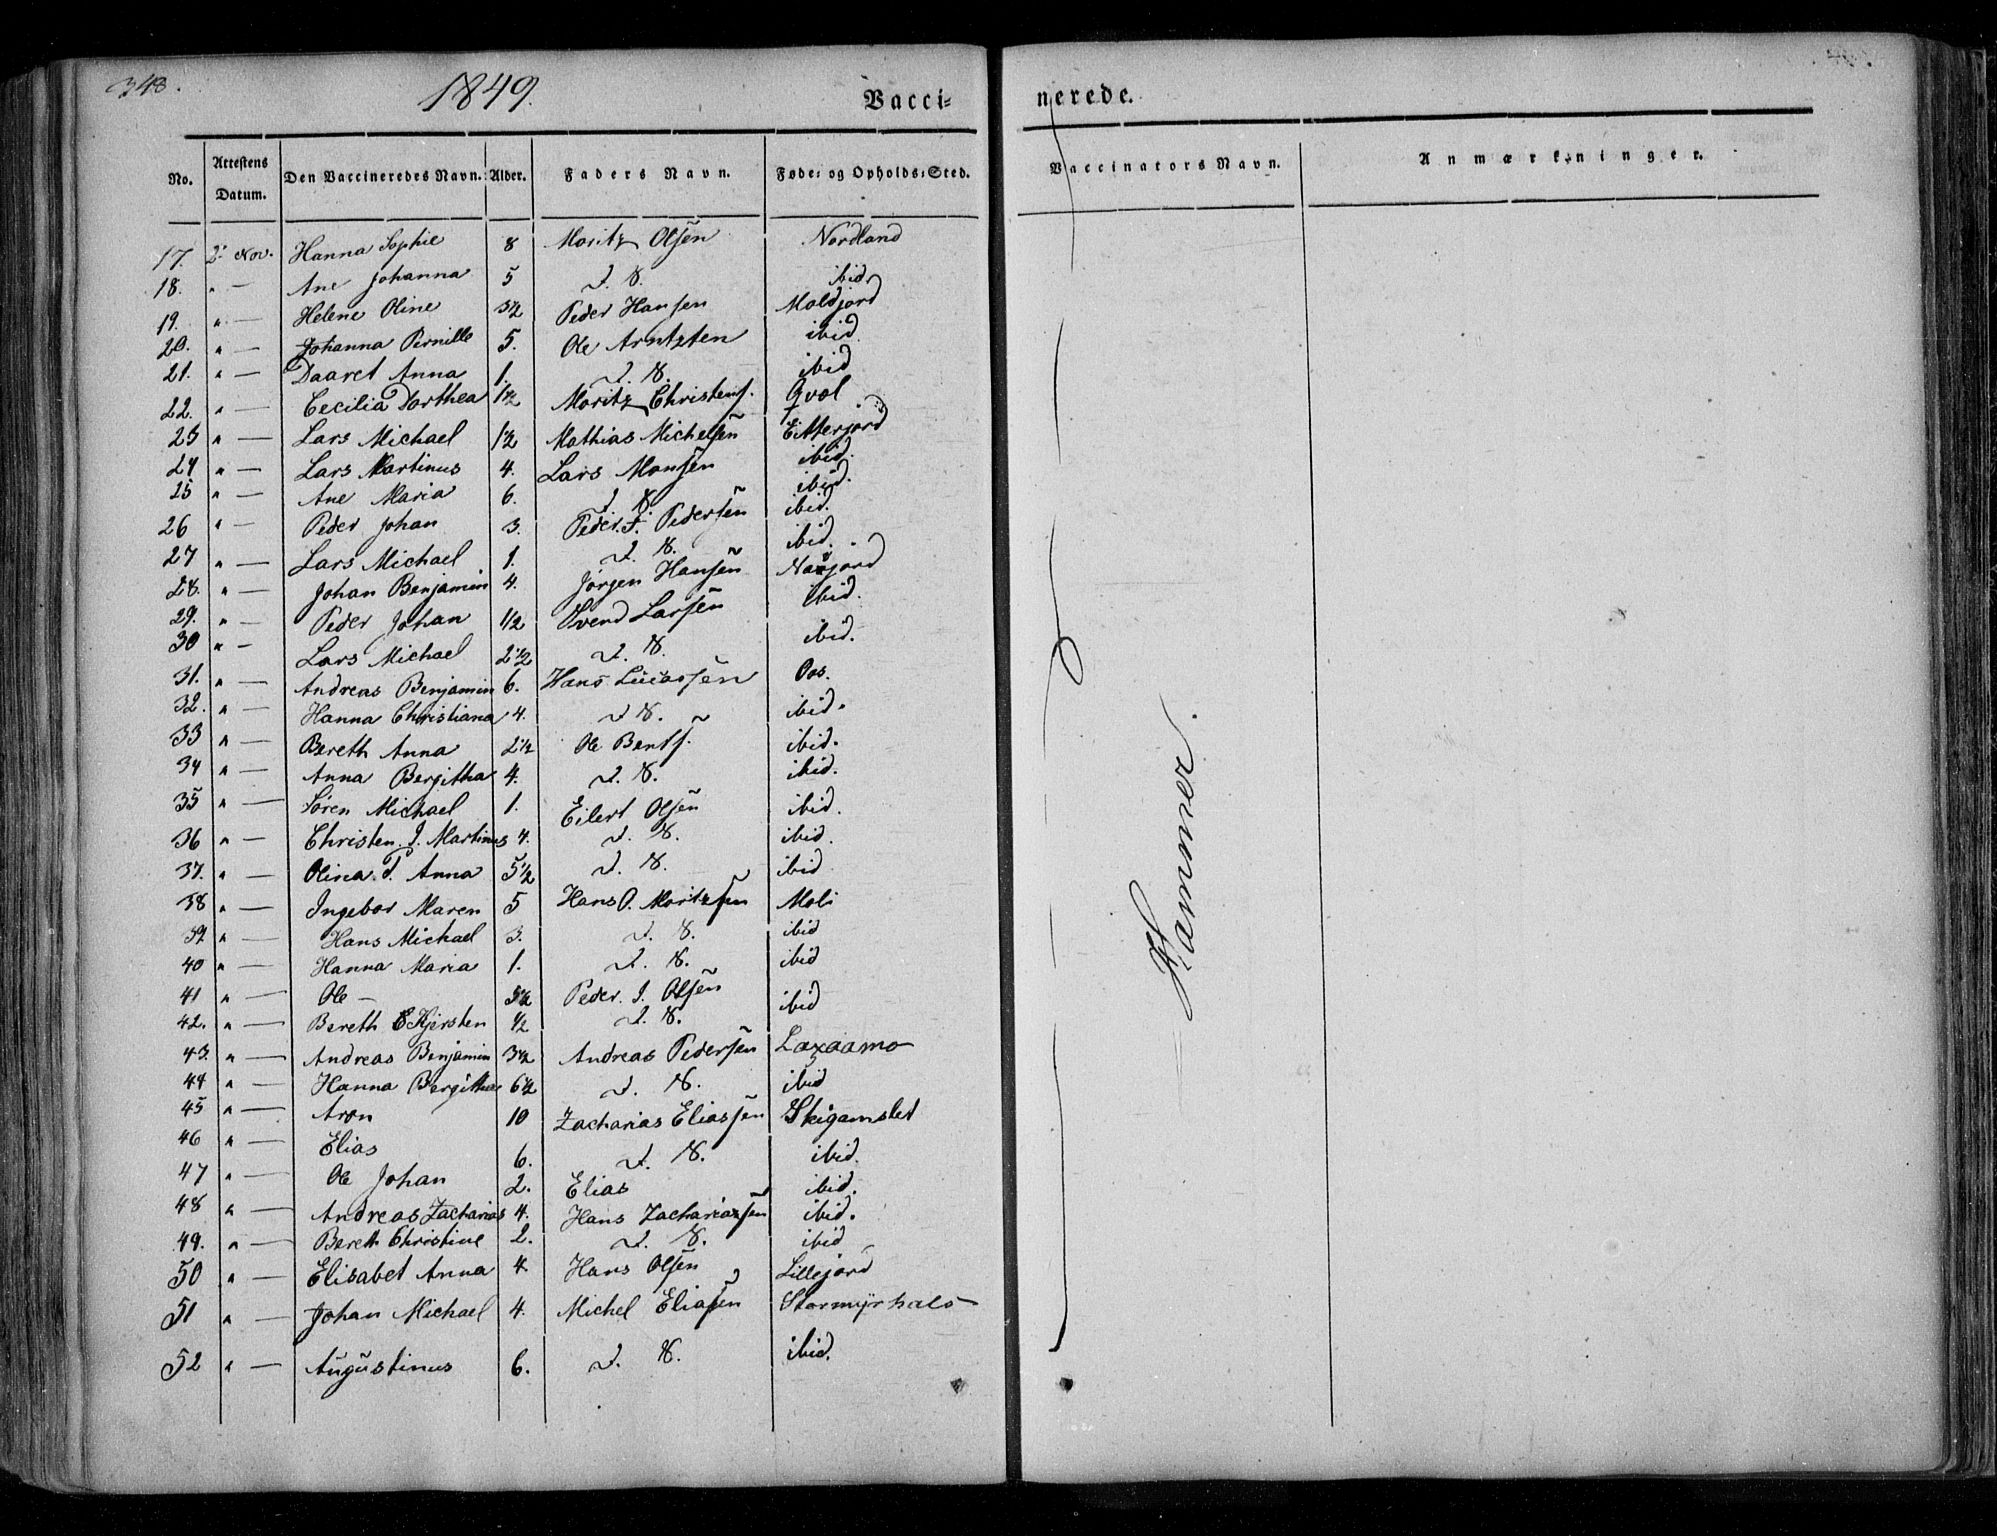 348.
1849.
Vacci-
nerede.
No. Attestens Datum. Den Vaccineredes Navn. Alder. Faders Navn. Føde- og Opholds-Sted.
Vaccinators Navn. Anmærkninger.
17. 2 Nov. Hanna Sophie 8 Moritz Olsen Nordland
18. " — Ane Johanna 5 d. s. ibid.
19. " — Helene Oline 3½ Peder Hansen Moldjord
20. " — Johanna Pernille 5. Ole Arntzten ibid.
21. " — Daaret Anna 1. d. s. ibid
22. " — Cecilia Dorthea 1½ Moritz Christens. Qval
23 " — Lars Michael 1½ Mathias Michelsen Eitterjord
24 " — Lars Martinus 4. Lars Monsen ibid.
25 " — Ane Maria 6. d. s. ibid.
26 " — Peder Johan 3. Peder. F. Pedersen ibid.
27 " — Lars Michael 1. d. s. ibid.
28. " — Johan Benjamin 4. Jørgen Hansen
29. " — Peder Johan 1/2 Svend Larsen ibid.
30 " — Lars Michael 2½ d. s. ibid.
31. " — Andreas Benjamin 6. Hans Lucassen Oos.
32. " — Hanna Christiana 4. d. s. ibid.
33 " — Bereth Anna 2½ Ole Bents. ibid.
34 " — Anna Bergitha 4. d. s. ibid.
35 " — Søren Michael 1. Eilert Olsen ibid.
36 " — Christen. J. Martinus 4. d. s. ibid.
37. " — Olina. T. Anna 5½ d. s. ibid
38 " — Ingebor Maren 5 Hans O. Moritzsen Moli
39 " — Hans Michael 3. d. s. ibid
40 " — Hanna Maria 1. d. s. ibid
41 " — Ole — 5½ Peder. J. Olsen ibid
42. " — Bereth Kjersten 1/2 d. s.
43. " — Andreas Benjamin 3½ Andreas Pedersen Laxaamo
44 " — Hanna Bergitha 6½ d. s. ibid
45 " — Aron 10 Zacharias Eliassen Skigamslet
46 " — Elias 6. d. s. ibid.
47 " — Ole Johan 2. Elias ibid.
48 " — Andreas Zacharias 4. Hans Zachariassen ibid.
49. " — Bereth Christine 2. d. s. ibid
50 " — Elisabet Anna 4. Hans Olsen Lillejord
51 " — Johan Michael 4. Michel Eliasen Stormyrhals
52 " — Augustinus 6. d. s. ibid.
Hammer.